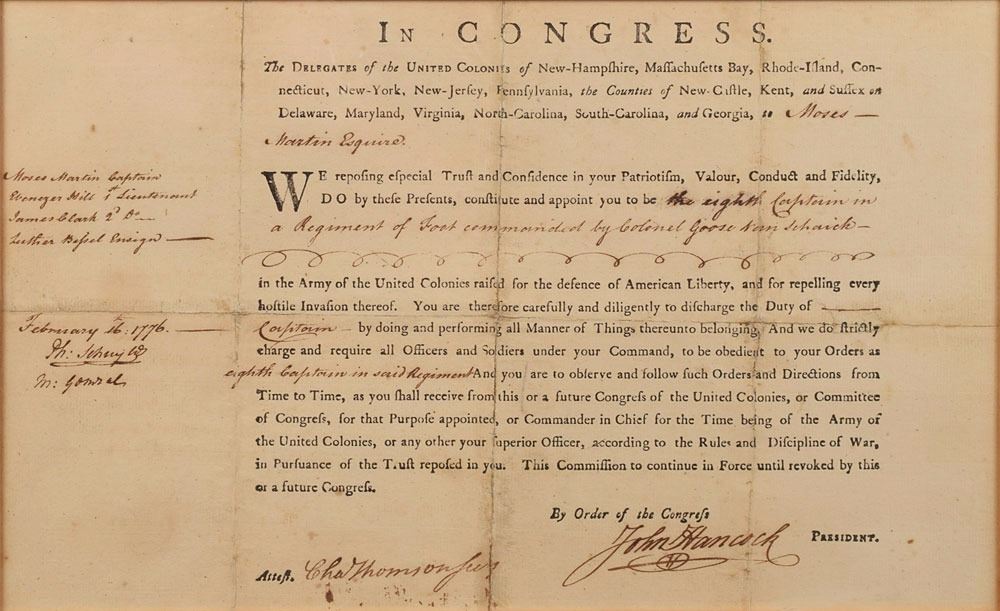 In CONGRESS.
The DELEGATES of the UNITED COLONIES of New-Hampſhire, Maſſachuſetts Bay, Rhode-Iſland, Con-
necticut, New-York, New-Jerſey, Pennſylvania, the Counties of New-Caſtle, Kent, and Suſſex on
Delaware, Maryland, Virginia, North-Carolina, South-Carolina, and Georgia, to Moses
Martin Esquire.
WE repoſing eſpecial Truſt and Confidence in your Patriotiſm, Valour, Conduct and Fidelity,
DO by theſe Preſents, conſtitute and appoint you to be the eighth Captain in
a Regiment of Foot commanded by Colonel Goose Van Schaick
in the Army of the United Colonies raiſed for the defence of American Liberty, and for repelling every
hoſtile Invaſion thereof. You are therefore carefully and diligently to diſcharge the Duty of
Captain by doing and performing all Manner of Things thereunto belonging. And we do ſtrictly
charge and require all Officers and Soldiers under your Command, to be obedient to your Orders as
eighth Captain in said Regiment And you are to obſerve and follow ſuch Orders and Directions from
Time to Time, as you ſhall receive from this or a future Congreſs of the United Colonies, or Committee
of Congreſs, for that Purpoſe appointed, or Commander in Chief for the Time being of the Army of
the United Colonies, or any other your ſuperior Officer, according to the Rules and Diſcipline of War,
in Purſuance of the Truſt repoſed in you. This Commiſſion to continue in Force until revoked by this
or a future Congreſs.
By Order of the Congreſs
John Hancock PRESIDENT.
Atteſt. Cha Thomson Secy
Moses Martin Captain
Ebenezer Hill 1st Lieutenant
James Clark 2d Do
Luther Bissel Ensign
February 16: 1776.
Ph: Schuyler